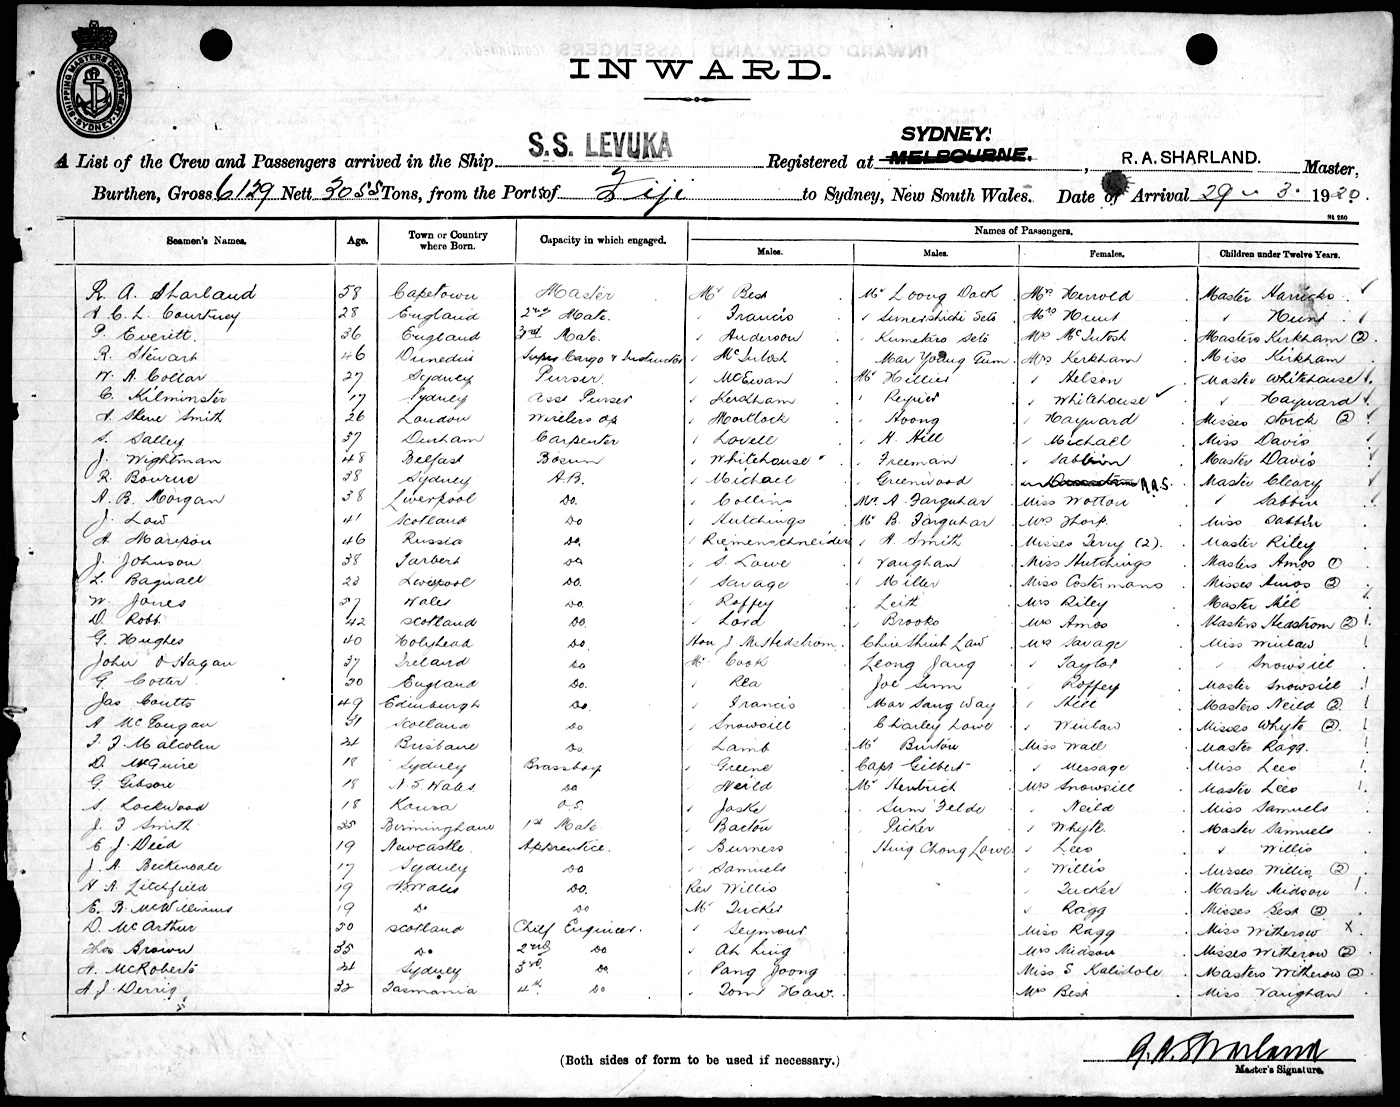 SHIPPING MASTERS DEPARTMENT SYDNEY
INWARD.
A List of the Crew and Passengers arrived in the Ship S.S. LEVUKA Registered at SYDNEY. MELBOURNE. , R. A. SHARLAND. Master,
Burthen, Gross 6129 Nett 3055 Tons, from the Ports of Fiji to Sydney, New South Wales. Date of Arrival 29 - 3. 1920.
St 250
Seamen's Names. Age. Town or Country where Born. Capacity in which engaged. Names of Passengers.
Males. Males. Females. Children under Twelve Years.
R. A. Sharland 58 Capetown Master Mr Best Mr Loong Dack Mrs Herrold Master Harricks
A C. L. Courtney 28 England 2nd Mate. " Francis Mrs Hunt " Hunt
P. Everitt 36 England 3rd Mate. " Anderson Kumekiro Seto Mrs McIntosh Masters Kirkham (2)
R. Stewart 46 Dunedin Super Cargo & Instructor " McIntosh Mar Young Gum Mrs Kirkham Miss Kirkham
W. A. Collar 27 Sydney Purser. " McEwan Mr Hillier " Nelson Master Whitehouse
C. Kilminster 17 Sydney Asst Purser " Kerdham " Reynier " Whitehouse " Hayward
A Skene Smith 26 London Wireless Op " Mortlock " Hoong " Hayward Misses Storck (2)
S. Salley 37 Durham Carpenter " Lovell " H. Hill " Michael Miss Davis
J. Wightman 48 Belfast Bosun " Whitehouse " Freeman " Sabbin Master Davis
R. Bourne 38 Sydney A.B. " Michael " Greenwood R.A.S. Master Cleary
A. B. Morgan 38 Liverpool Do. " Collins Mr. A. Farquhar Miss Wotton " Sabbin
J. Law 41 Scotland Do " Hutchings Mr B. Farquhar Mrs Thorp. Miss Sabbin
A. Marison 46 Russia Do. " Riemenschneider " A. Smith Misses Terry (2). Master Riley
J. Johnson 38 Tarbert Do " S. Lowe " Vaughan Miss Hutchings Masters Amos (1)
L. Bagnall 23 Liverpool Do. " Savage " Miller Miss Costermans Misses Amos (2)
W. Jones 57 Wales Do. " Roffey " Leith Mrs Riley Master Hill
D. Robb 42 Scotland Do " Lord " Brooks Mrs Amos Masters Hedstrom (2)
G. Hughes 40 Holyhead Do. Hon J. M. Hedstrom. Chin Shint Law Mrs Savage Miss Winlaw
John O'Hagan 37 Ireland Do Mr Cook Leong Jang " Taylor " Snowsill
G. Cotter 30 England Do. " Rea Joe Sum " Roffey Master Snowsill
Jas Coutts 49 Edinburgh Do. " Francis Mar Sang Way " Hill Masters Neild (2)
A McDougan 31 Scotland Do " Snowsill Charley Lowe " Winlaw Misses Whyte (2)
F. J Malcolm 21 Brisbane Do " Lamb Mr Burton Miss Wall Master Ragg.
D. McGuire 18 Sydney Brassboy " Greene Capt Gilbert " Message Miss Lees
G. Gibson 18 N. S. Wales Do " Neild Mr Hentrich Mrs Snowsill Master Lees
S. Lockwood 18 O.S. " Jaske " Sum Felde " Neild Miss Samuels
J. F Smith 35 Birmingham 1st Mate " Bacton " Picker " Whyte Master Samuels
E J. Deed 19 Newcastle. Apprentice. " Burness Hing Chong Lowe. " Lees " Willis
J. A. Beckinsale 17 Sydney Do " Samuels " Willis Misses Willis (2)
H A. Litchfield 19 N S Wales Do. Rev Willis " Tucker Master Midson
E. B. McWilliams 19 Do Do Mr Tucker " Ragg Misses Best (2)
D. McArthur 50 Scotland Chief Engineer. " Seymour Miss Ragg Miss Witherow X
Thos Brown 35 Do 2nd Do " Ah Ling Mrs Midson Misses Witherow (2)
H. McRoberts 24 Sydney 3rd Do " Pang Joong Miss S Kalidole Masters Witherow (2)
A J. Derrig 32 Tasmania 4th Do " Tom Haw. Mrs Best Miss Vaughan
(Both sides of form to be used if necessary.)
R. A. Sharland
Master's Signature.